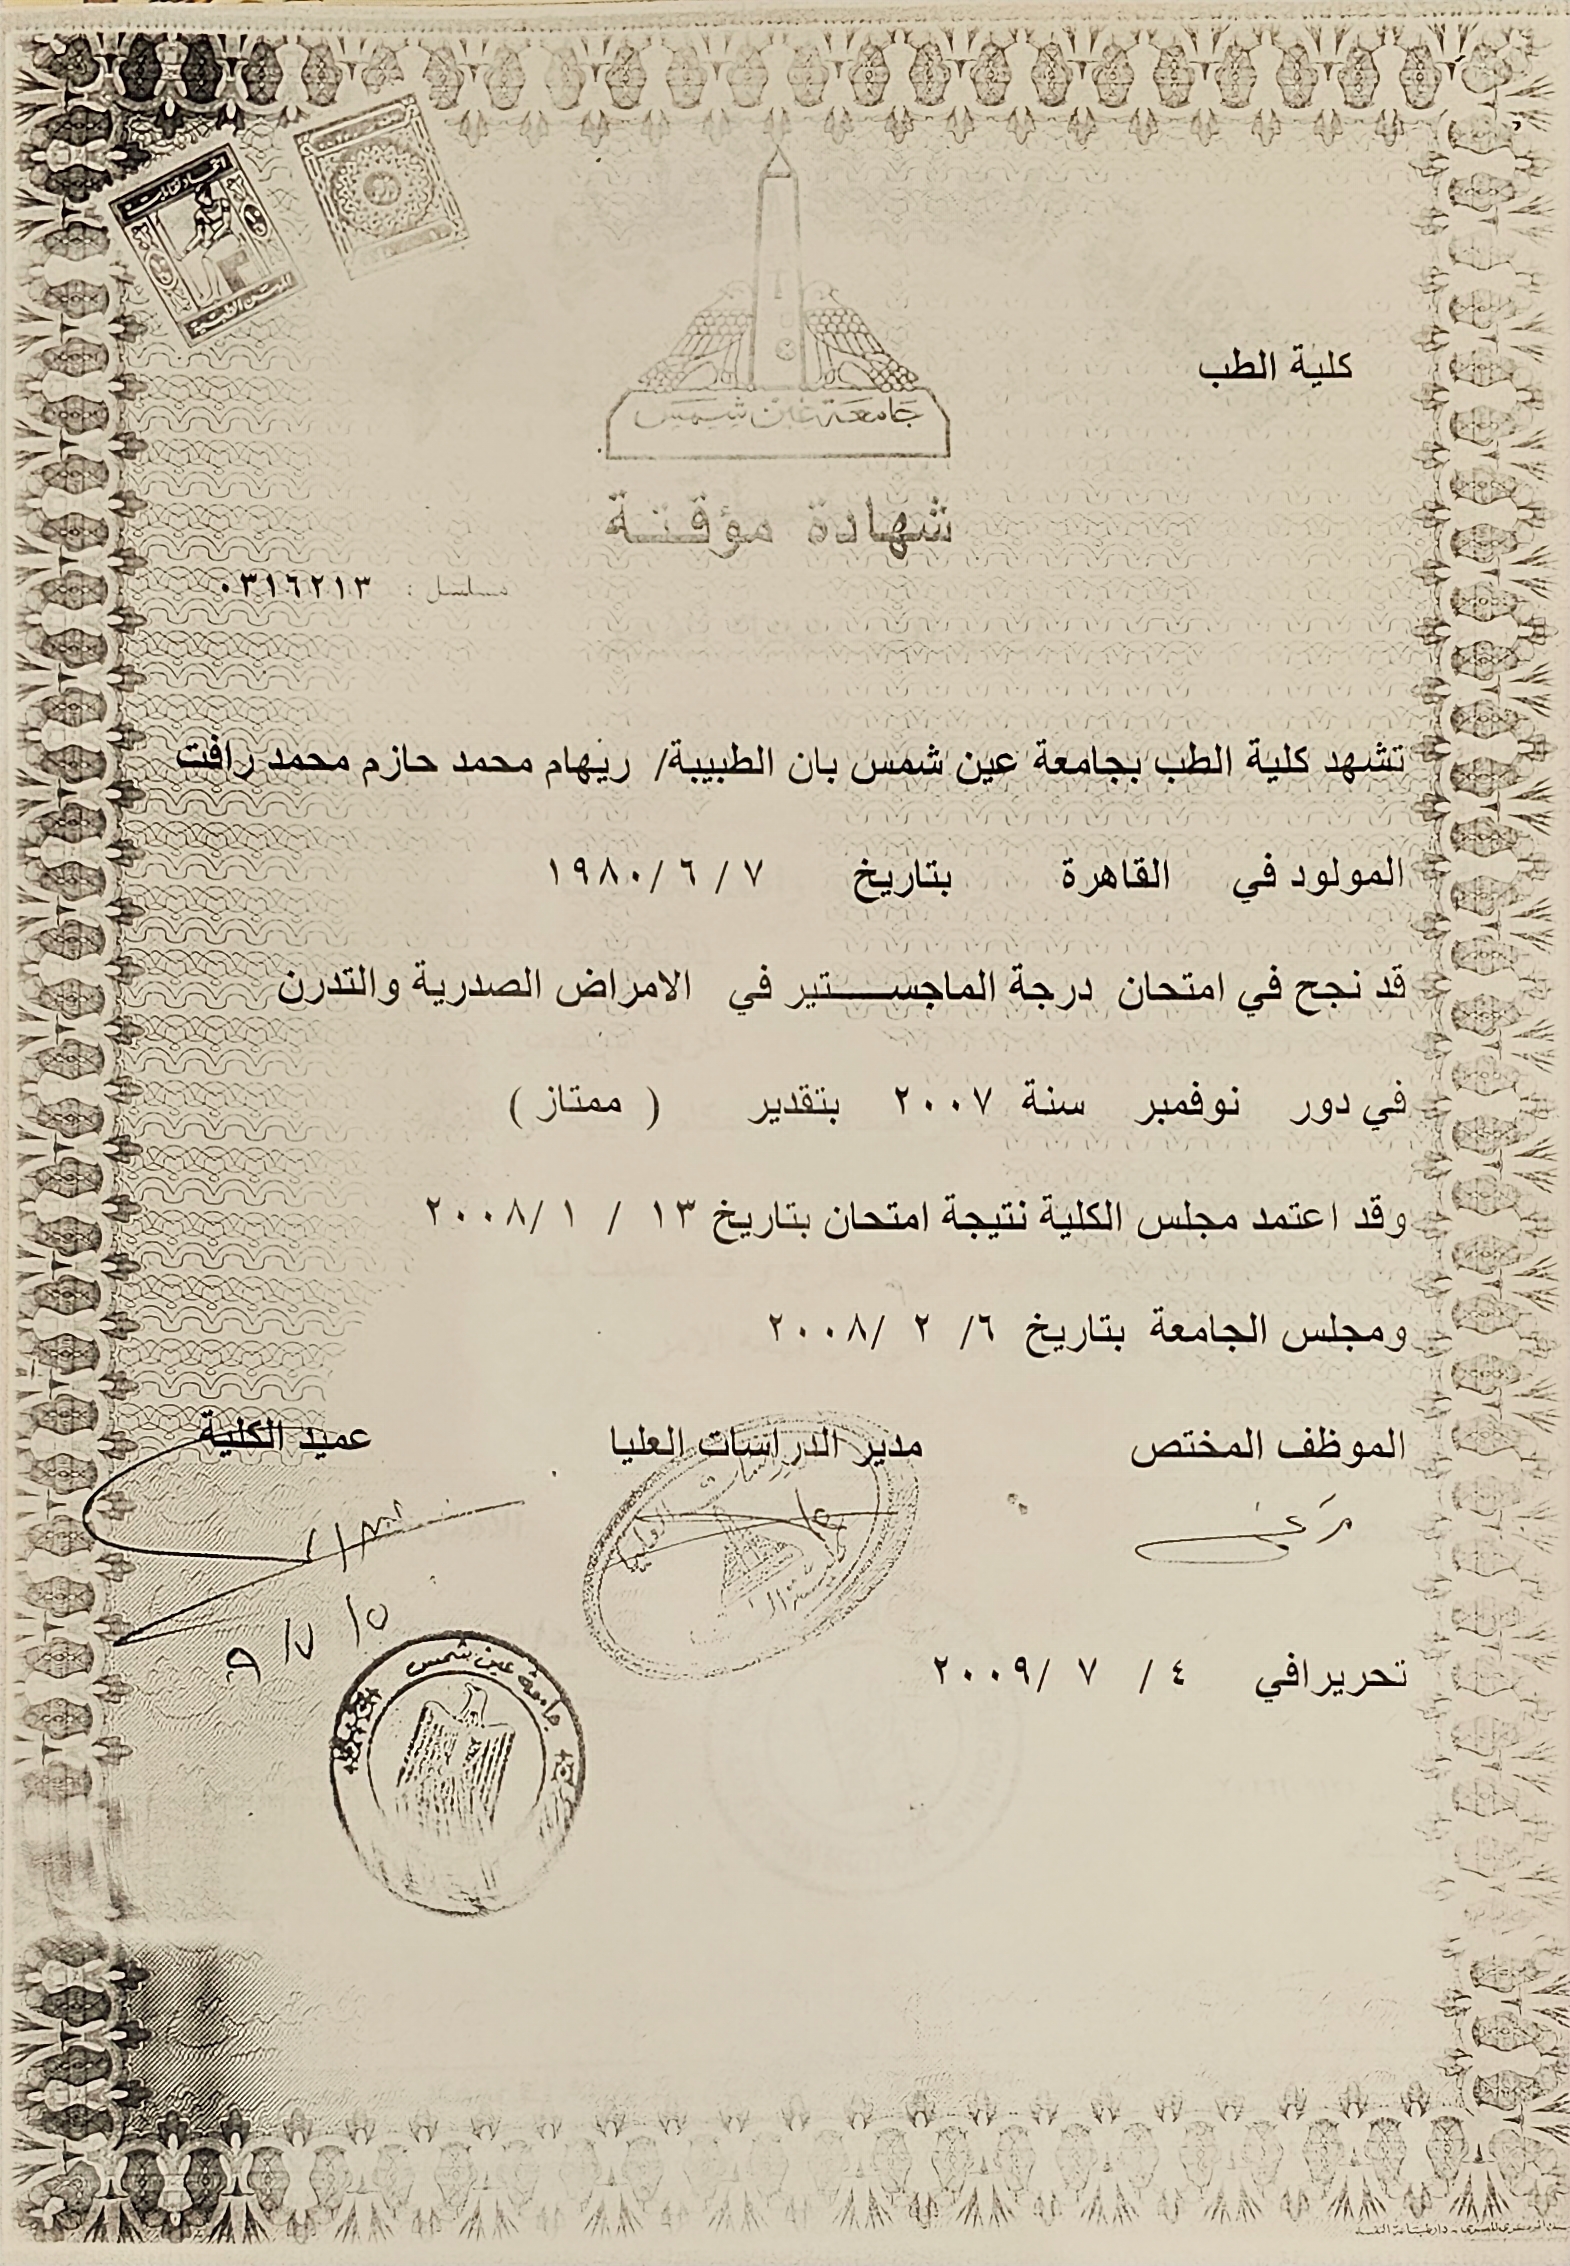 اتحاد نقابات
المهن الطبية
كلية الطب
جامعة عين شمس
شهادة مؤقتة
مسلسل : ٠٣١٦٢١٣
تشهد كلية الطب بجامعة عين شمس بان الطبيبة/ ريهام محمد حازم محمد رافت
المولود في القاهرة بتاريخ ٧ / ٦ /١٩٨٠
قد نجح في امتحان درجة الماجستير في الامراض الصدرية والتدرن
في دور نوفمبر سنة ٢٠٠٧ بتقدير ( ممتاز )
وقد اعتمد مجلس الكلية نتيجة امتحان بتاريخ ١٣ / ١ /٢٠٠٨
ومجلس الجامعة بتاريخ ٦/ ٢ /٢٠٠٨
الموظف المختص مدير الدراسات العليا عميد الكلية
الدراسات العليا
٥/ ٧/ ٩
جامعة عين شمس
تحريرافي ٤ / ٧ /٢٠٠٩